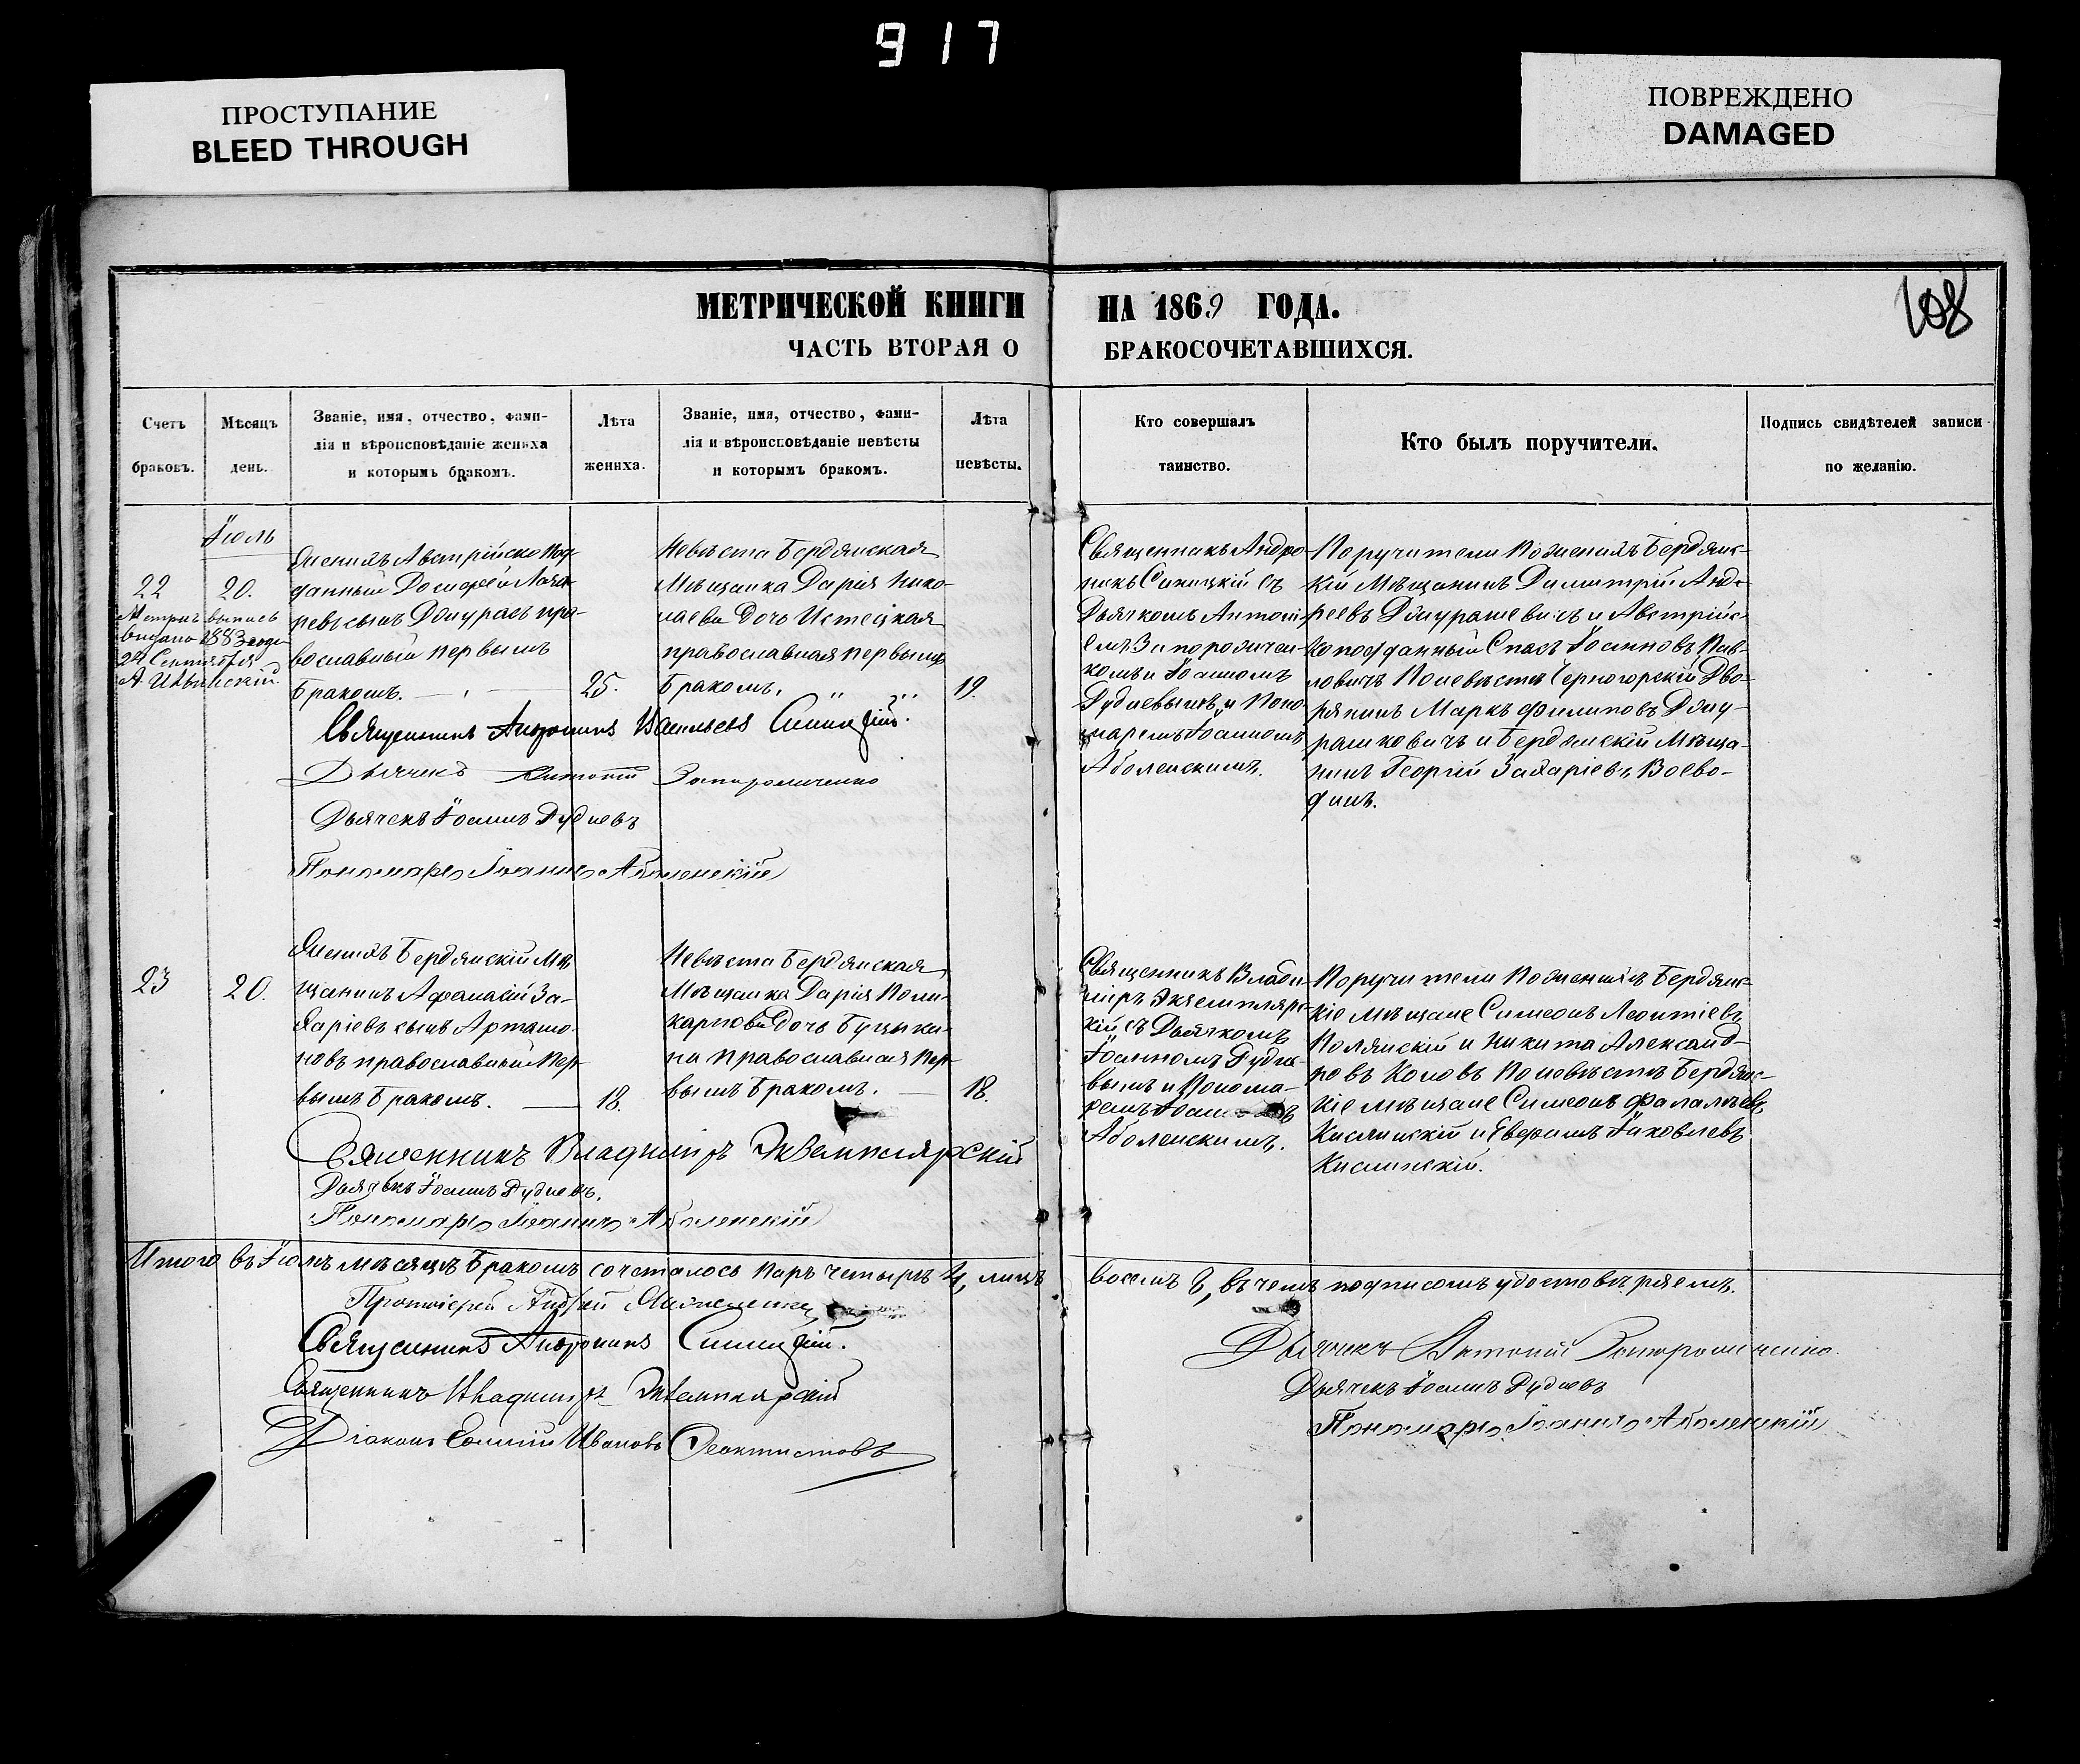 917
ПРОСТУПАНИЕ
BLEED THROUGH
ПОВРЕЖДЕНО
DAMAGED
108
МЕТРИЧЕСКОЙ КНИГИ НА 1869 ГОДА.
ЧАСТЬ ВТОРАЯ О БРАКОСОЧЕТАВШИХСЯ.
Счетъ
браковъ.
Мѣсяцъ
день.
Званіе, имя, отчество, фами-
лія и вѣроисповѣданіе жениха
и которымъ бракомъ.
Лѣта
жениха.
Званіе, имя, отчество, фами-
лія и вѣроисповѣданіе невѣсты
и которымъ бракомъ.
Лѣта
невѣсты.
Кто совершалъ
таинство.
Кто былъ поручители.
Подпись свидѣтелей записи
по желанію.
Іюль
22
20.
Метрич выпись
выдана 1883 года
24 Сентября
А
Женихъ Австрійско Под-
данный Досифей
сынъ Джурасъ пра-
вославный первымъ
Бракомъ.
25.
Невѣста Бердянская
Мѣщанка Дарія Нико-
лаева Дочь Истецкая
православная первымъ
Бракомъ.
19.
Священникъ Андро-
никъ Синицкій съ
Дьячкомъ Антоні-
емъ Запорожчен-
комъ и Іоанномъ
Дудневымъ и Поно-
маремъ Іоанномъ
Аболенскимъ.
Поручители По женихѣ Бердянс-
кій Мѣщанинъ Димитрій Анд-
реевъ Джурашевичъ и Австрійс-
ко подданный Спасъ Іоанновъ Пав-
ловичъ По невѣстѣ Черногорскій Дво-
рянинъ Маркъ Филиповъ Джу-
рашковичъ и Бердянскій Мѣща-
нинъ Георгій Захаріевъ Воево-
динъ.
Священникъ Андроникъ Васильевъ Синицкій.
Дьячекъ Антоній Запорожченко
Дьячекъ Іоаннъ Дудневъ
Пономарь Іоаннъ Аболенскій
23
20.
Женихъ Бердянскій Мѣ-
щанинъ Афанасій За-
харіевъ сынъ Артамо-
новъ православный Пер-
вымъ Бракомъ.
18.
Невѣста Бердянская
Мѣщанка Дарія Поли-
карпова Дочь
на Православная Пер-
вымъ Бракомъ.
18.
Священникъ Влади-
міръ Экземплярс-
кій съ Дьячкомъ
Іоанномъ Дудне-
вымъ и Понома-
ремъ
Аболенскимъ.
Поручители По женихѣ Бердянс-
кіе мѣщане Симеонъ Леонтіевъ
Полянскій и Никита Александ-
ровъ Коновъ По невѣстѣ Бердянс-
кіе мѣщане Симеонъ Фалалѣевъ
Кислинскій и Евфимъ Іаковлевъ
Кислинскій.
Священникъ Владиміръ Экземплярскій
Дьячекъ Іоаннъ Дудневъ.
Пономарь Іоаннъ Аболенскій
Итого въ Іюлѣ мѣсяцѣ Бракомъ сочеталось Паръ четырѣ 4, лицъ восемъ 8, въ чемъ подписомъ удостовѣряемъ.
Протоіерей Андрей
Священникъ Андроникъ Синицкій.
Священникъ Владиміръ Экземплярскій
Діаконъ Іоанній Ивановъ Феоктистовъ
Дьячекъ Антоній Запорожченко.
Дьячекъ Іоаннъ Дудневъ
Пономарь Іоаннъ Аболенскій